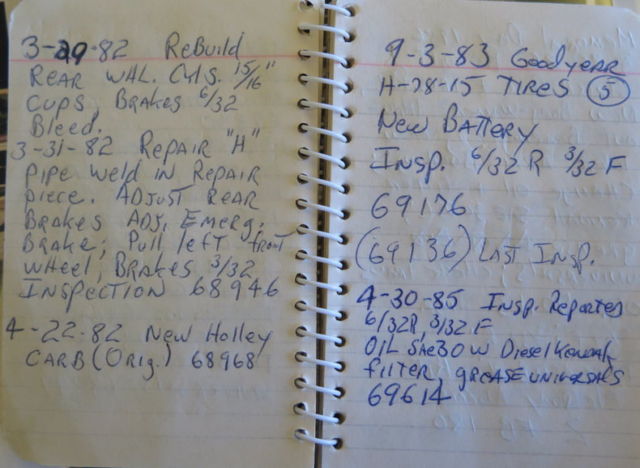 3-29-82 ReBuild
REAR WHL. CYLS. 15/16"
CUPS, BRAKES 6/32
Bleed.
3-31-82 REPAIR "H"
PIPE WELD IN REPAIR
PIECE. ADJUST REAR
BRAKES ADJ. EMERG.
BRAKE; Pull left front
WHEEL, BRAKES 3/32
INSPECTION 68946
4-22-82 NEW Holley
CARB (ORIG.) 68968
9-3-83 GoodyEAR
H-78-15 TIRES (5)
New BATTERY
INSP. 6/32 R 3/32 F
69176
(69136) LAST INSP.
4-30-85 INSP. Reported
6/32R, 3/32 F
OIL 30W Diesel Kendall
FILTER, GREASE UNIVERSALS
69614